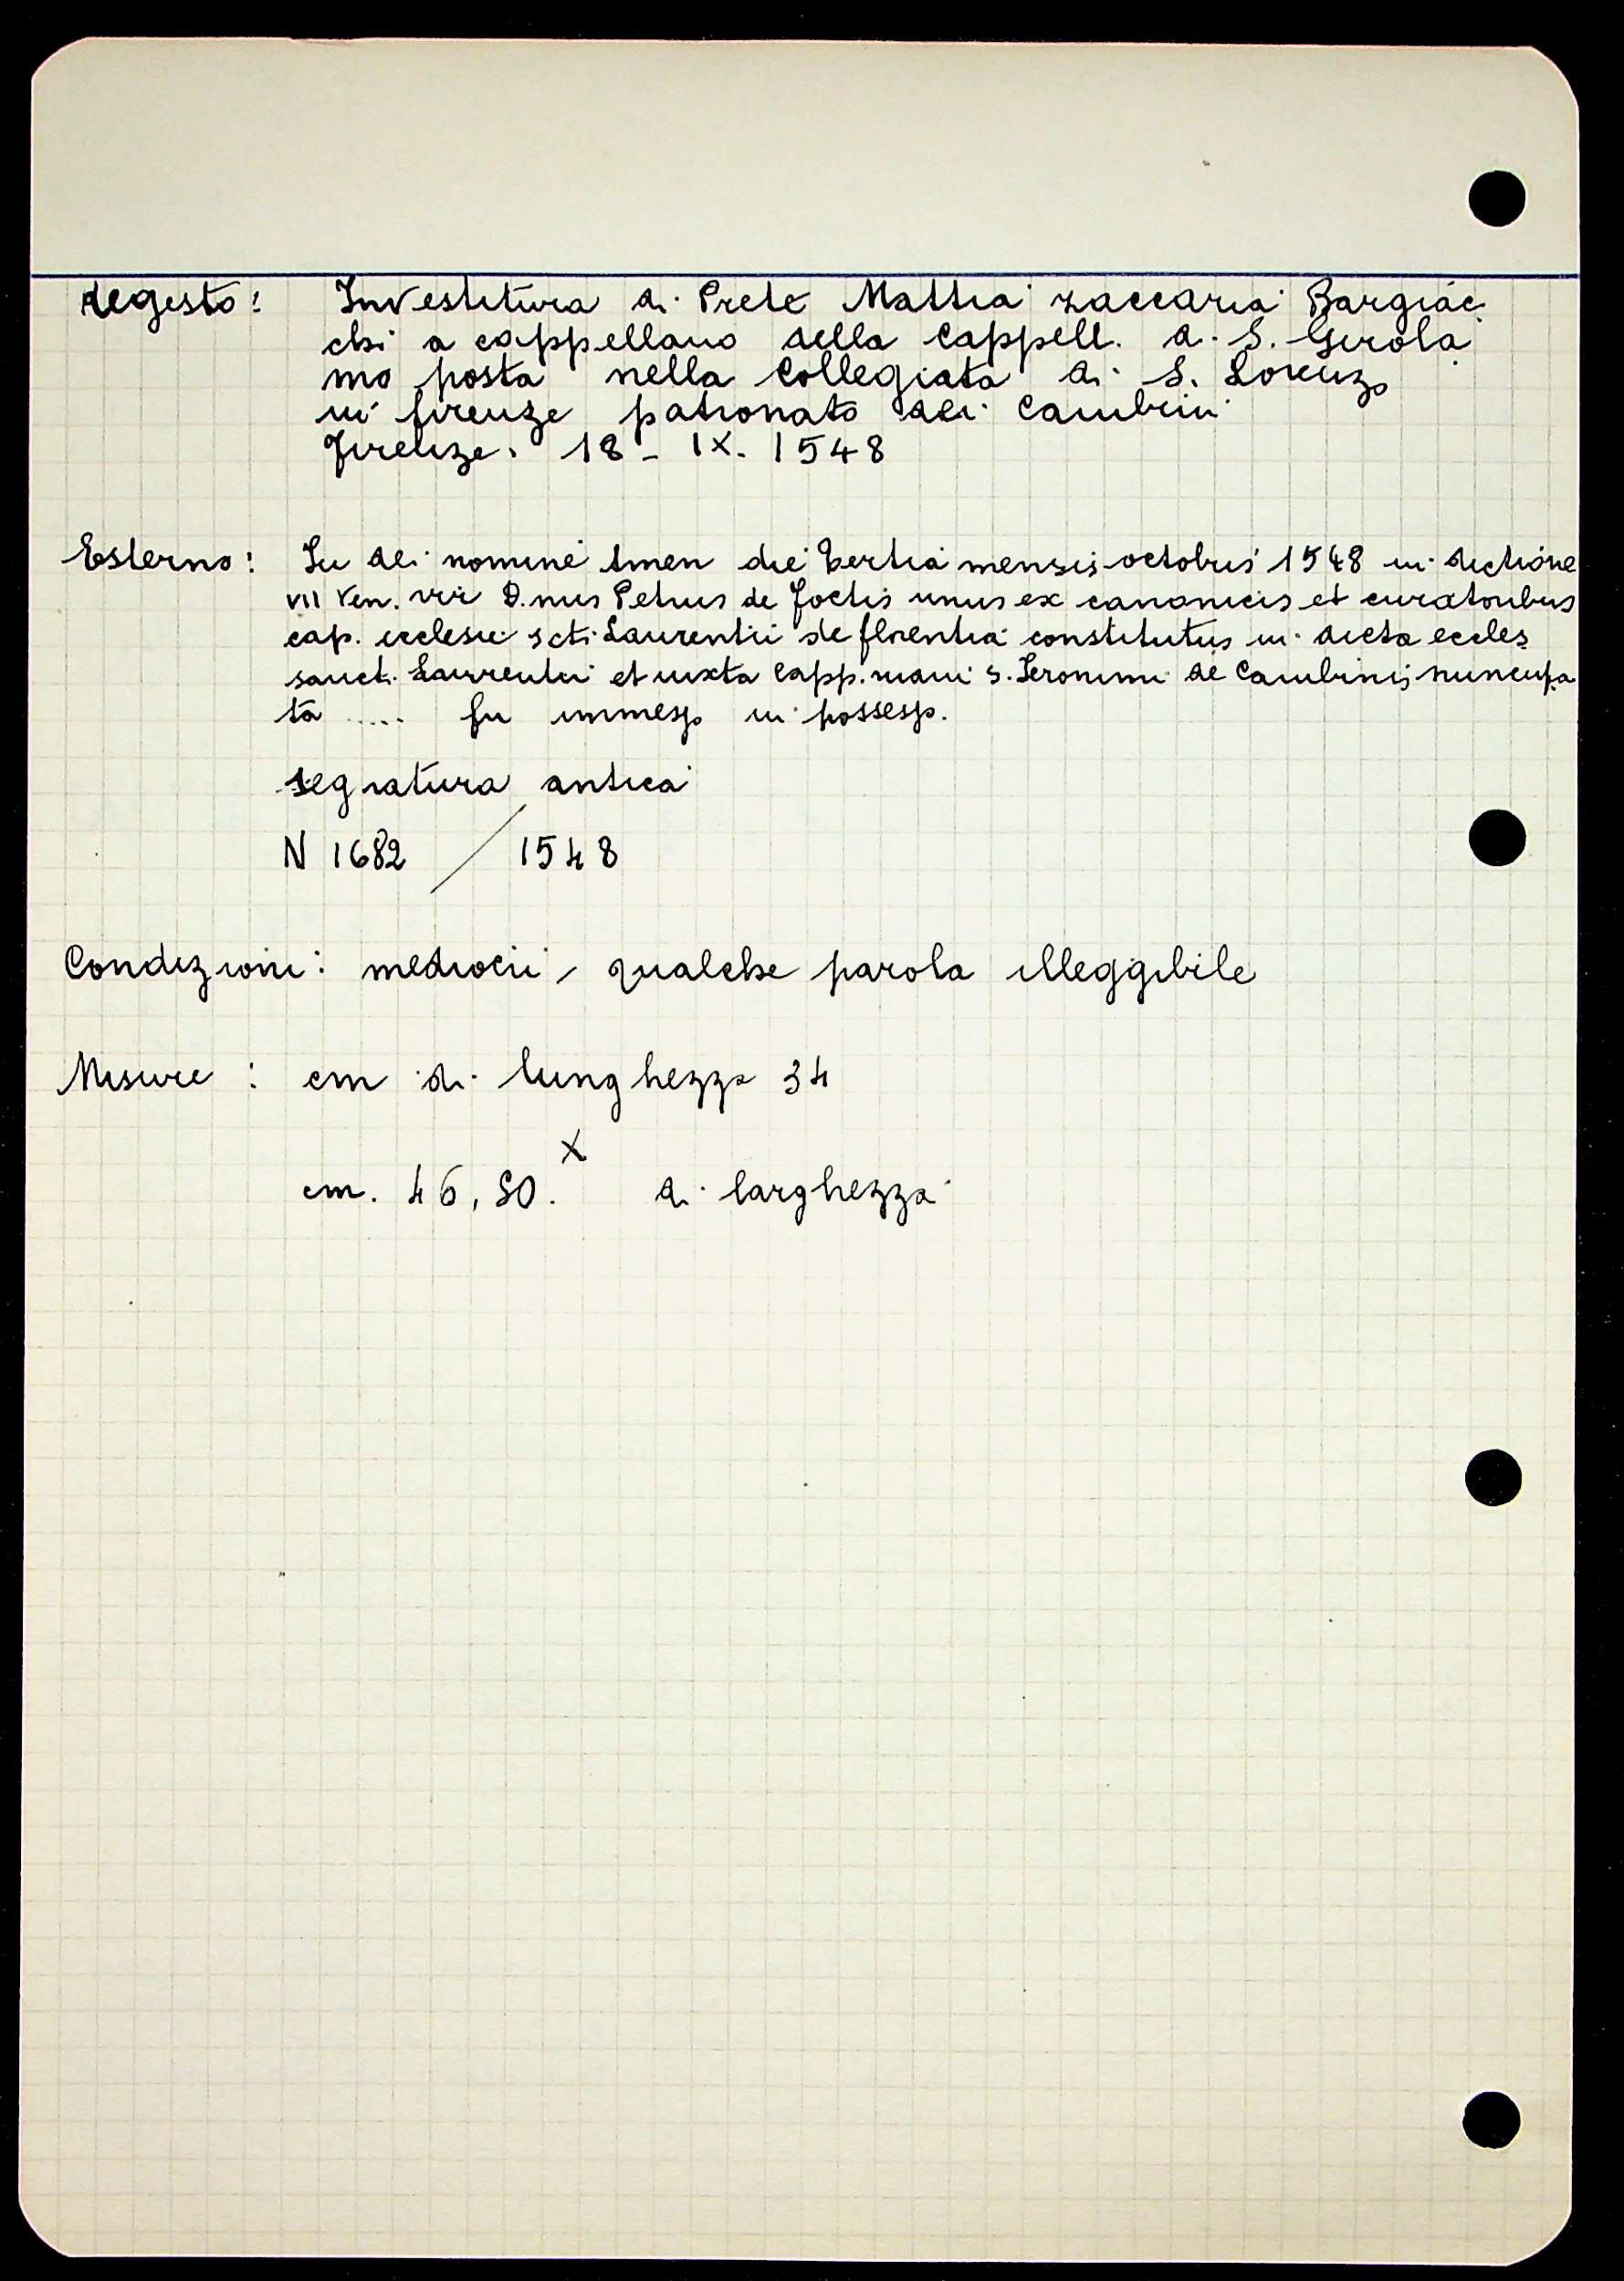 Regesto: Investitura di Prete Mattia Zaccaria Bargiac
chi a cappellano della Cappell. di S. Girola
mo posta nella Collegiata di S. Lorenzo
in firenze patronato dei Cambini
Firenze. 18 - IX. 1548
Esterno: In dei nomine Amen die tertia mensis octobris 1548 in dictione
VII Ven. vir D.nus Petrus de unus ex canonicis et curatoribus
cap. ecclesie scti Laurentii de florentia constitutus in dicta eccles
sancti Laurentii et iuxta Capp. S. Ieronimi de Cambinis nuncupa
ta ..... fu immesso in possesso.
segnatura antica
N 1682 / 1548
Condizioni: mediocri, qualche parola illeggibile
Misure : cm di lunghezza 34
x
cm. 46,50. di larghezza